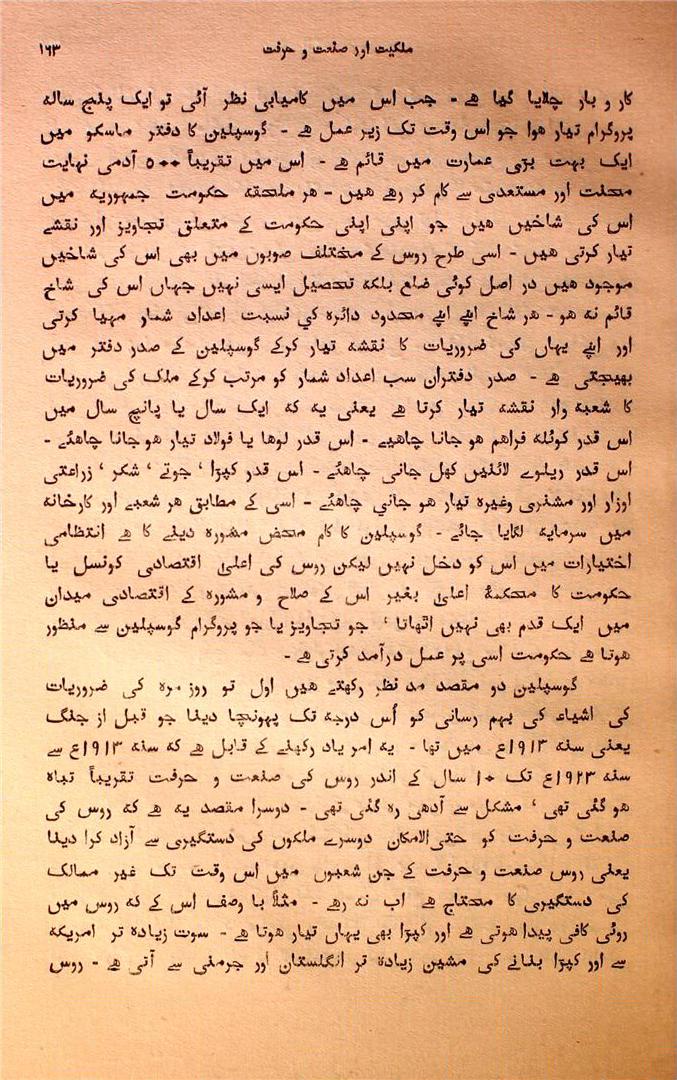 ملکیت اور صنعت و حرفت ۱۶۳
کار و بار چلایا گیا ھے - جب اس میں کامیابی نظر آئی تو ایک پنج سالہ
پروگرام تیار ھوا جو اس وقت تک زیر عمل ھے - گوسپلین کا دفتر ماسکو میں
ایک بہت بڑی عمارت میں قائم ھے - اس میں تقریباً ۵۰۰ آدمی نہایت
محنت اور مستعدی سے کام کر رھے ھیں - ھر ملحقہ حکومت جمہوریہ میں
اس کی شاخیں ھیں جو اپنی اپنی حکومت کے متعلق تجاویز اور نقشے
تیار کرتی ھیں - اسی طرح روس کے مختلف صوبوں میں بھی اس کی شاخیں
موجود ھیں در اصل کوئی ضلع بلکہ تحصیل ایسی نہیں جہاں اس کی شاخ
قائم نہ ھو - ھر شاخ اپنے اپنے محدود دائرہ کي نسبت اعداد شمار مہیا کرتی
اور اپنے یہاں کی ضروریات کا نقشہ تیار کرکے گوسپلین کے صدر دفتر میں
بھیجتی ھے - صدر دفتران سب اعداد شمار کو مرتب کرکے ملک کی ضروریات
کا شعبہ وار نقشہ تیار کرتا ھے یعنی یہ کہ ایک سال یا پانچ سال میں
اس قدر کوئلہ فراھم ھو جانا چاھیے - اس قدر لوھا یا فولاد تیار ھو جانا چاھئے -
اس قدر ریلوے لائنیں کھل جانی چاھئے - اس قدر کپڑا ، جوتے ، شکر ، زراعتی
اوزار اور مشنری وغیرہ تیار ھو جاني چاھئے - اسی کے مطابق ھر شعبے اور کارخانہ
میں سرمایہ لگایا جائے - گوسپلین کا کام محض مشورہ دینے کا ھے انتظامی
اختیارات میں اس کو دخل نہیں لیکن روس کی اعلیٰ اقتصادی کونسل یا
حکومت کا محکمۂ اعلیٰ بغیر اس کے صلاح و مشورہ کے اقتصادی میدان
میں ایک قدم بھی نہیں اٹھاتا ، جو تجاویز یا جو پروگرام گوسپلین سے منظور
ھوتا ھے حکومت اسی پر عمل درآمد کرتی ھے -
گوسپلین دو مقصد مد نظر رکھتے ھیں اول تو روز مرہ کی ضروریات
کی اشیاء کی بہم رسانی کو اُس درجہ تک پہونچا دینا جو قبل از جنگ
یعنی سنہ ۱۹۱۳ع میں تھا - یہ امر یاد رکھنے کے قابل ھے کہ سنہ ۱۹۱۳ع سے
سنہ ۱۹۲۳ع تک ۱۰ سال کے اندر روس کی صنعت و حرفت تقریباً تباہ
ھو گئی تھی ، مشکل سے آدھی رہ گئی تھی - دوسرا مقصد یہ ھے کہ روس کی
صنعت و حرفت کو حتی‌الامکان دوسرے ملکوں کی دستگیری سے آزاد کرا دینا
یعنی روس صنعت و حرفت کے جن شعبوں میں اس وقت تک غیر ممالک
کی دستگیری کا محتاج ھے اب نہ رھے - مثلاً با وصف اس کے کہ روس میں
روئی کافی پیدا ھوتی ھے اور کپڑا بھی یہاں تیار ھوتا ھے - سوت زیادہ تر امریکہ
سے اور کپڑا بنانے کی مشین زیادہ تر انگلستان اور جرمنی سے آتی ھے - روس